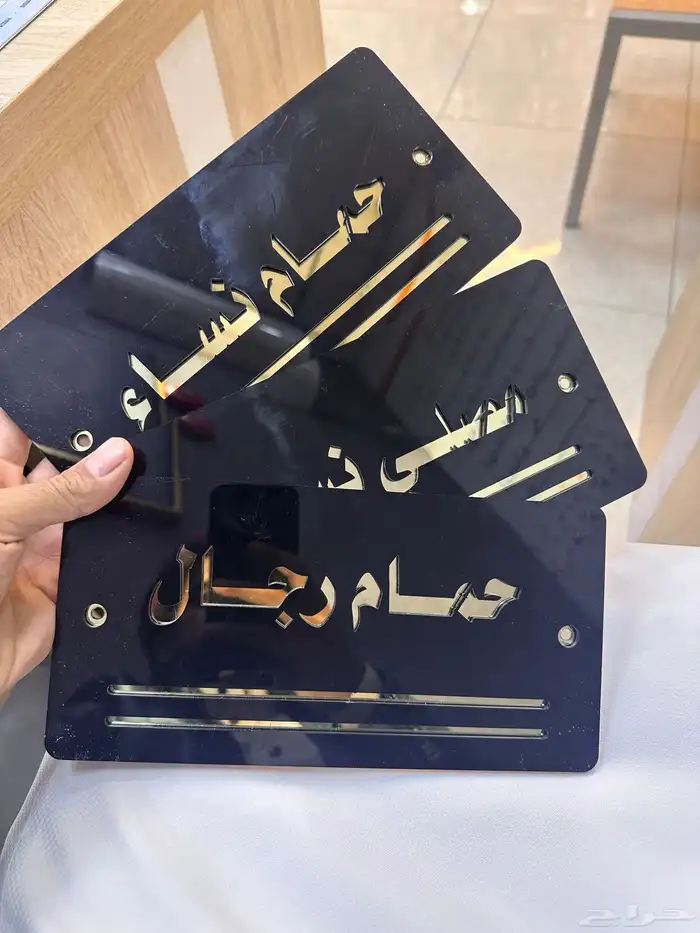 حمام نساء
مصلى
حمام رجال
حراج